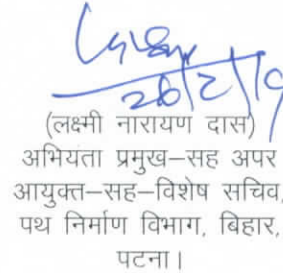 26/2/19
(लक्ष्मी नारायण दास)
अभियता प्रमुख–सह अपर
आयुक्त–सह–विशेष सचिव,
पथ निर्माण विभाग, बिहार,
पटना।